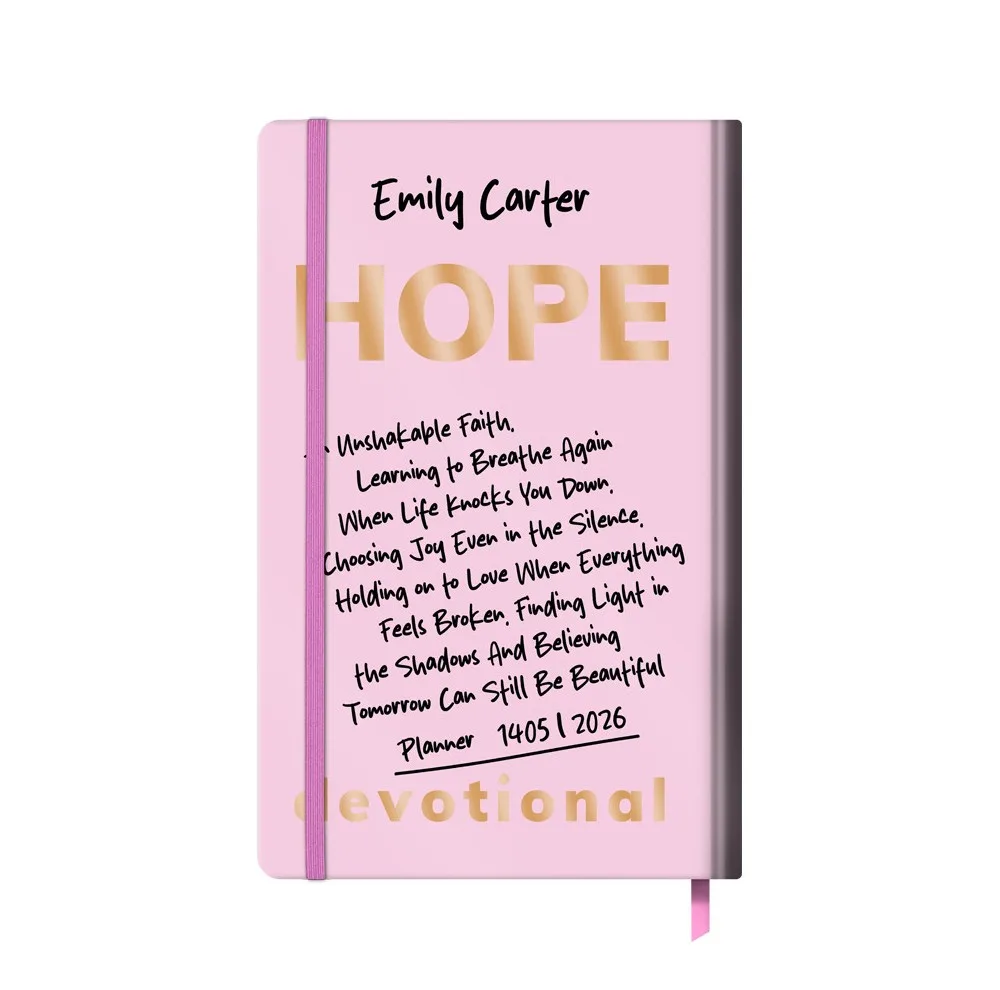 Emily Carter
HOPE
Unshakable Faith.
Learning to Breathe Again
When Life Knocks You Down.
Choosing Joy Even in the Silence.
Holding on to Love When Everything
Feels Broken. Finding Light in
the Shadows And Believing
Tomorrow Can Still Be Beautiful
Planner 1405 | 2026
devotional